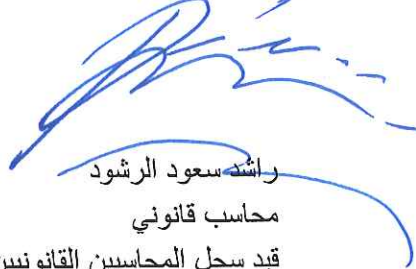 راشد سعود الرشود
محاسب قانوني
قيد سجل المحاسبين القانونيين